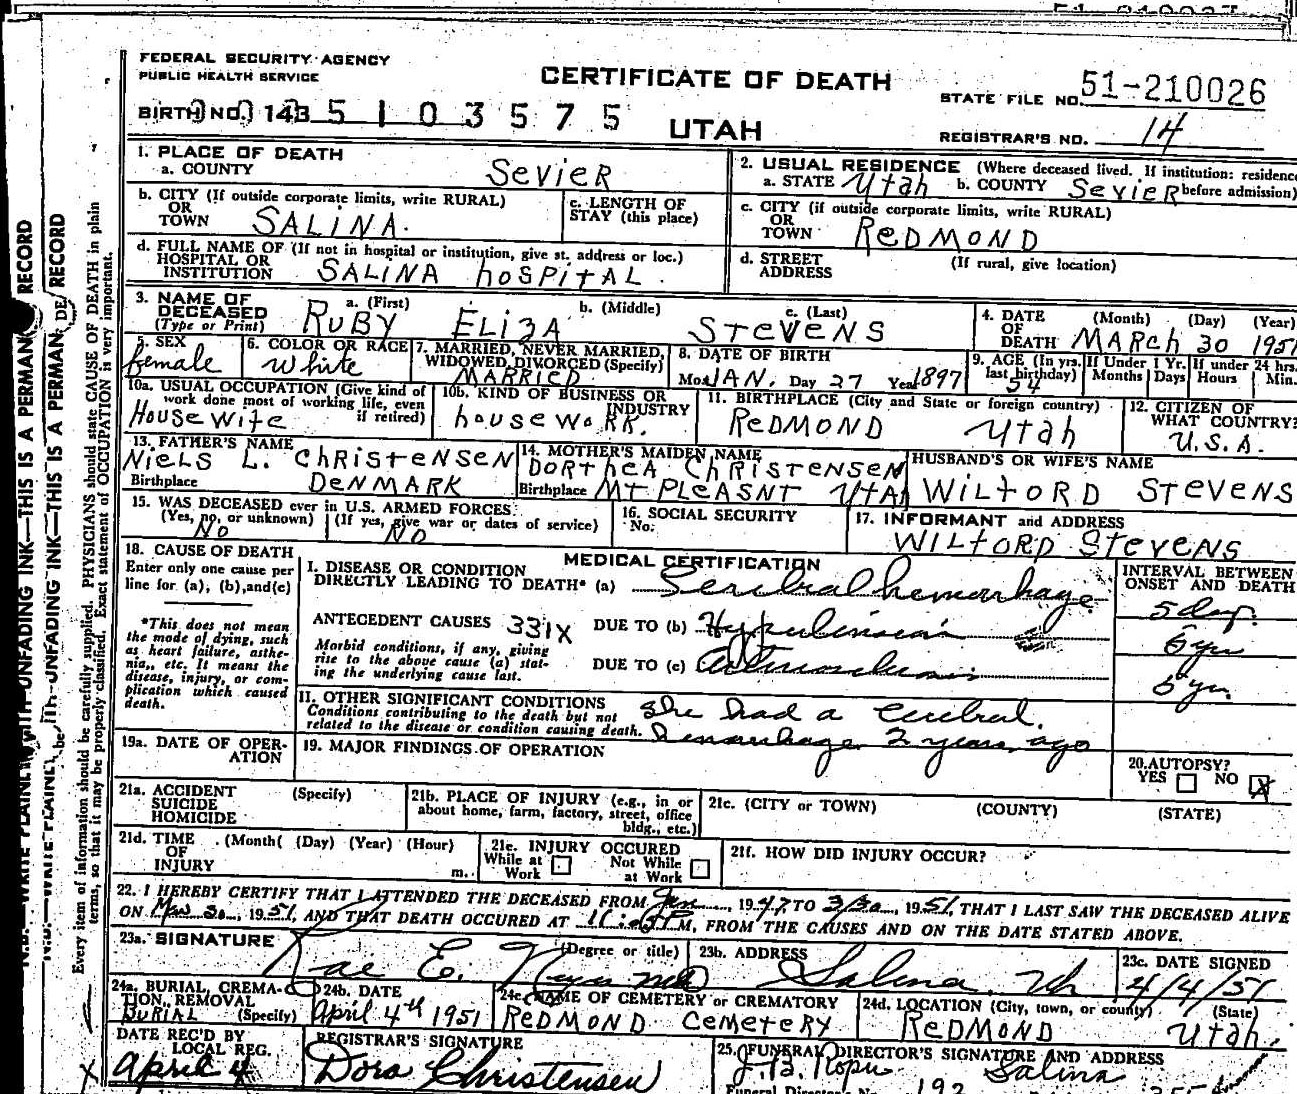 FEDERAL SECURITY AGENCY
PUBLIC HEALTH SERVICE
CERTIFICATE OF DEATH
UTAH
STATE FILE NO. 51-210026
REGISTRAR'S NO. 14
BIRTH NO. 143 5 1 0 3 5 7 5
1. PLACE OF DEATH
a. COUNTY SEVIER
b. CITY (If outside corporate limits, write RURAL)
OR
TOWN SALINA.
c. LENGTH OF
STAY (this place)
d. FULL NAME OF (If not in hospital or institution, give st. address or loc.)
HOSPITAL OR
INSTITUTION SALINA hOSPITAL.
2. USUAL RESIDENCE (Where deceased lived. If institution: residence
before admission)
a. STATE Utah b. COUNTY SEVIER
c. CITY (if outside corporate limits, write RURAL)
OR
TOWN REDMOND
d. STREET
ADDRESS
(If rural, give location)
3. NAME OF
DECEASED
(Type or Print)
a. (First) b. (Middle) c. (Last)
RUBY ELIZA STEVENS
4. DATE
OF
DEATH
(Month) (Day) (Year)
MARCH 30 1951
5. SEX
female
6. COLOR OR RACE
White
7. MARRIED, NEVER MARRIED,
WIDOWED, DIVORCED (Specify)
MARRIED
8. DATE OF BIRTH
Mo. JAN. Day 27 Year 1897
9. AGE (In yrs.
last birthday)
54
If Under 1 Yr.
Months Days
If under 24 hrs.
Hours Min.
10a. USUAL OCCUPATION (Give kind of
work done most of working life, even
if retired)
HOUSEWIFE
10b. KIND OF BUSINESS OR
INDUSTRY
houseWoRK.
11. BIRTHPLACE (City and State or foreign country)
REDMOND Utah
12. CITIZEN OF
WHAT COUNTRY?
U.S.A.
13. FATHER'S NAME
NIELS L. ChRISTENSEN
Birthplace DENMARK
14. MOTHER'S MAIDEN NAME
DORThEA ChRISTENSEN
Birthplace MT PLEASNT UTAH
HUSBAND'S OR WIFE'S NAME
WILFORD STEVENS
15. WAS DECEASED ever in U.S. ARMED FORCES?
(Yes, no, or unknown) (If yes, give war or dates of service)
No NO
16. SOCIAL SECURITY
No.
17. INFORMANT and ADDRESS
WILFORD STEVENS
18. CAUSE OF DEATH
Enter only one cause per
line for (a), (b), and (c)
*This does not mean
the mode of dying, such
as heart failure, asthe-
nia, etc. It means the
disease, injury, or com-
plication which caused
death.
MEDICAL CERTIFICATION
I. DISEASE OR CONDITION
DIRECTLY LEADING TO DEATH* (a) Cerebral hemorrhage
ANTECEDENT CAUSES 331X DUE TO (b) Hypertension
Morbid conditions, if any, giving
rise to the above cause (a) stat-
ing the underlying cause last.
DUE TO (c)
INTERVAL BETWEEN
ONSET AND DEATH
5 days
6 yrs
5 yr.
II. OTHER SIGNIFICANT CONDITIONS
Conditions contributing to the death but not
related to the disease or condition causing death.
She had a cerebral
hemorrhage 2 years ago
19a. DATE OF OPER-
ATION
19. MAJOR FINDINGS OF OPERATION
20. AUTOPSY?
YES NO X
21a. ACCIDENT
SUICIDE
HOMICIDE
(Specify)
21b. PLACE OF INJURY (e.g., in or
about home, farm, factory, street, office
bldg., etc.)
21c. (CITY or TOWN) (COUNTY) (STATE)
21d. TIME
OF
INJURY
(Month) (Day) (Year) (Hour)
m.
21e. INJURY OCCURED
While at
Work
Not While
at Work
21f. HOW DID INJURY OCCUR?
22. I HEREBY CERTIFY THAT I ATTENDED THE DECEASED FROM Jan, 1947 TO 3/30, 1951, THAT I LAST SAW THE DECEASED ALIVE
ON Mar 30, 1951, AND THAT DEATH OCCURED AT P M, FROM THE CAUSES AND ON THE DATE STATED ABOVE.
23a. SIGNATURE (Degree or title)
Rae E. Noyes MD
23b. ADDRESS
Salina, Ut
23c. DATE SIGNED
4/4/51
24a. BURIAL, CREMA-
TION, REMOVAL
(Specify)
BURIAL
24b. DATE
April 4th 1951
24c. NAME OF CEMETERY or CREMATORY
REDMOND CEMETERY
24d. LOCATION (City, town, or county) (State)
REDMOND Utah.
DATE REC'D BY
LOCAL REG.
April 4
REGISTRAR'S SIGNATURE
Dora Christensen
25. FUNERAL DIRECTOR'S SIGNATURE AND ADDRESS
Salina
Every item of information should be carefully supplied. PHYSICIANS should state CAUSE OF DEATH in plain
terms, so that it may be properly classified. Exact statement of OCCUPATION is very important.
N.B.—WRITE PLAINLY, WITH UNFADING INK—THIS IS A PERMANENT RECORD